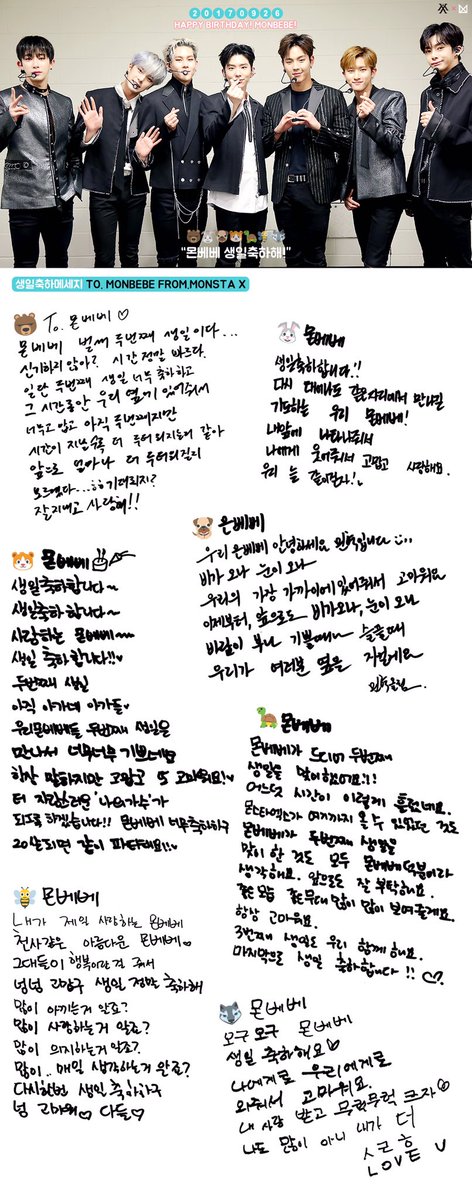 20170926
HAPPY BIRTHDAY! MONBEBE!
"몬베베 생일축하해!"
생일축하메세지 TO. MONBEBE FROM.MONSTA X
To. 몬베베 ♡
몬베베 벌써 두번째 생일이다...
신기하지 않아? 시간 정말 빠르다.
일단 두번째 생일 너무 축하하고
그 시간동안 우리 옆에 있어줘서
너무 고맙고 아직 두번째지만
시간이 지날수록 더 두터워지는거 같아
앞으로 얼마나 더 두터워질지
모르겠다...ㅎㅎ 기대되지?
잘지내고 사랑해!!
몬베베
생일축하합니다!!
다시 대에나도 같은자리에서 만나길
기도하는 우리 몬베베!
내앞에 나타나줘서
나에게 웃어줘서 고맙고 사랑해요.
우리 늘 같이한다!
몬베베
우리 몬베베 안녕하세요 민혁입니다
비가 오나 눈이 오나
우리의 가장 가까이에 있어줘서 고마워요
이제부터, 앞으로도 비가오나, 눈이 오나
바람이 부나 기쁠때나 슬플때
우리가 여러분 옆을 지킬게요
민혁올림.
몬베베
생일축하합니다~
생일축하 합니다~
사랑하는 몬베베~~
생일 축하합니다!!♥
두번째 생일
아직 아가네 아가들♥
우리몬베베들 두번째 생일을
만나서 너무너무 기쁘네요
항상 말하지만 고맙고 또 고마워요!♥
더 자랑스러운 '나의가수'가
되도록 하겠습니다!! 몬베베 너무축하하구
20살되면 같이 파티해요!!♥
몬베베
몬베베가 드디어 두번째
생일을 맞이했어요!!
어느덧 시간이 이렇게 흘렀네요.
몬스타엑스가 여기까지 올 수 있었던 것도
몬베베가 두번째 생일을
맞이 한 것도 모두 몬베베 덕분이라
생각해요. 앞으로도 잘 부탁해요.
좋은모습 좋은무대 많이 많이 보여줄게요.
항상 고마워요.
3번째 생일도 우리 함께 해요.
마지막으로 생일 축하합니다!! ♡
몬베베
내가 제일 사랑하는 몬베베
천사같은 아름다운 몬베베♡
그대들이 행복이란걸 줘서
넘넘 고맙구 생일 정말 축하해
많이 아끼는거 알죠?
많이 사랑하는거 알죠?
많이 의지하는거 알죠?
많이.. 매일 생각하는거 알죠?
다시한번 생일축하하구
넘 고마워♡ 다들♡
몬베베
오구오구 몬베베
생일 축하해요♡
나에게로 우리에게로
와줘서 고마워요.
내 사랑 받고 무럭무럭 크자♡
나도 많이 아니 내가 더
LOVE U